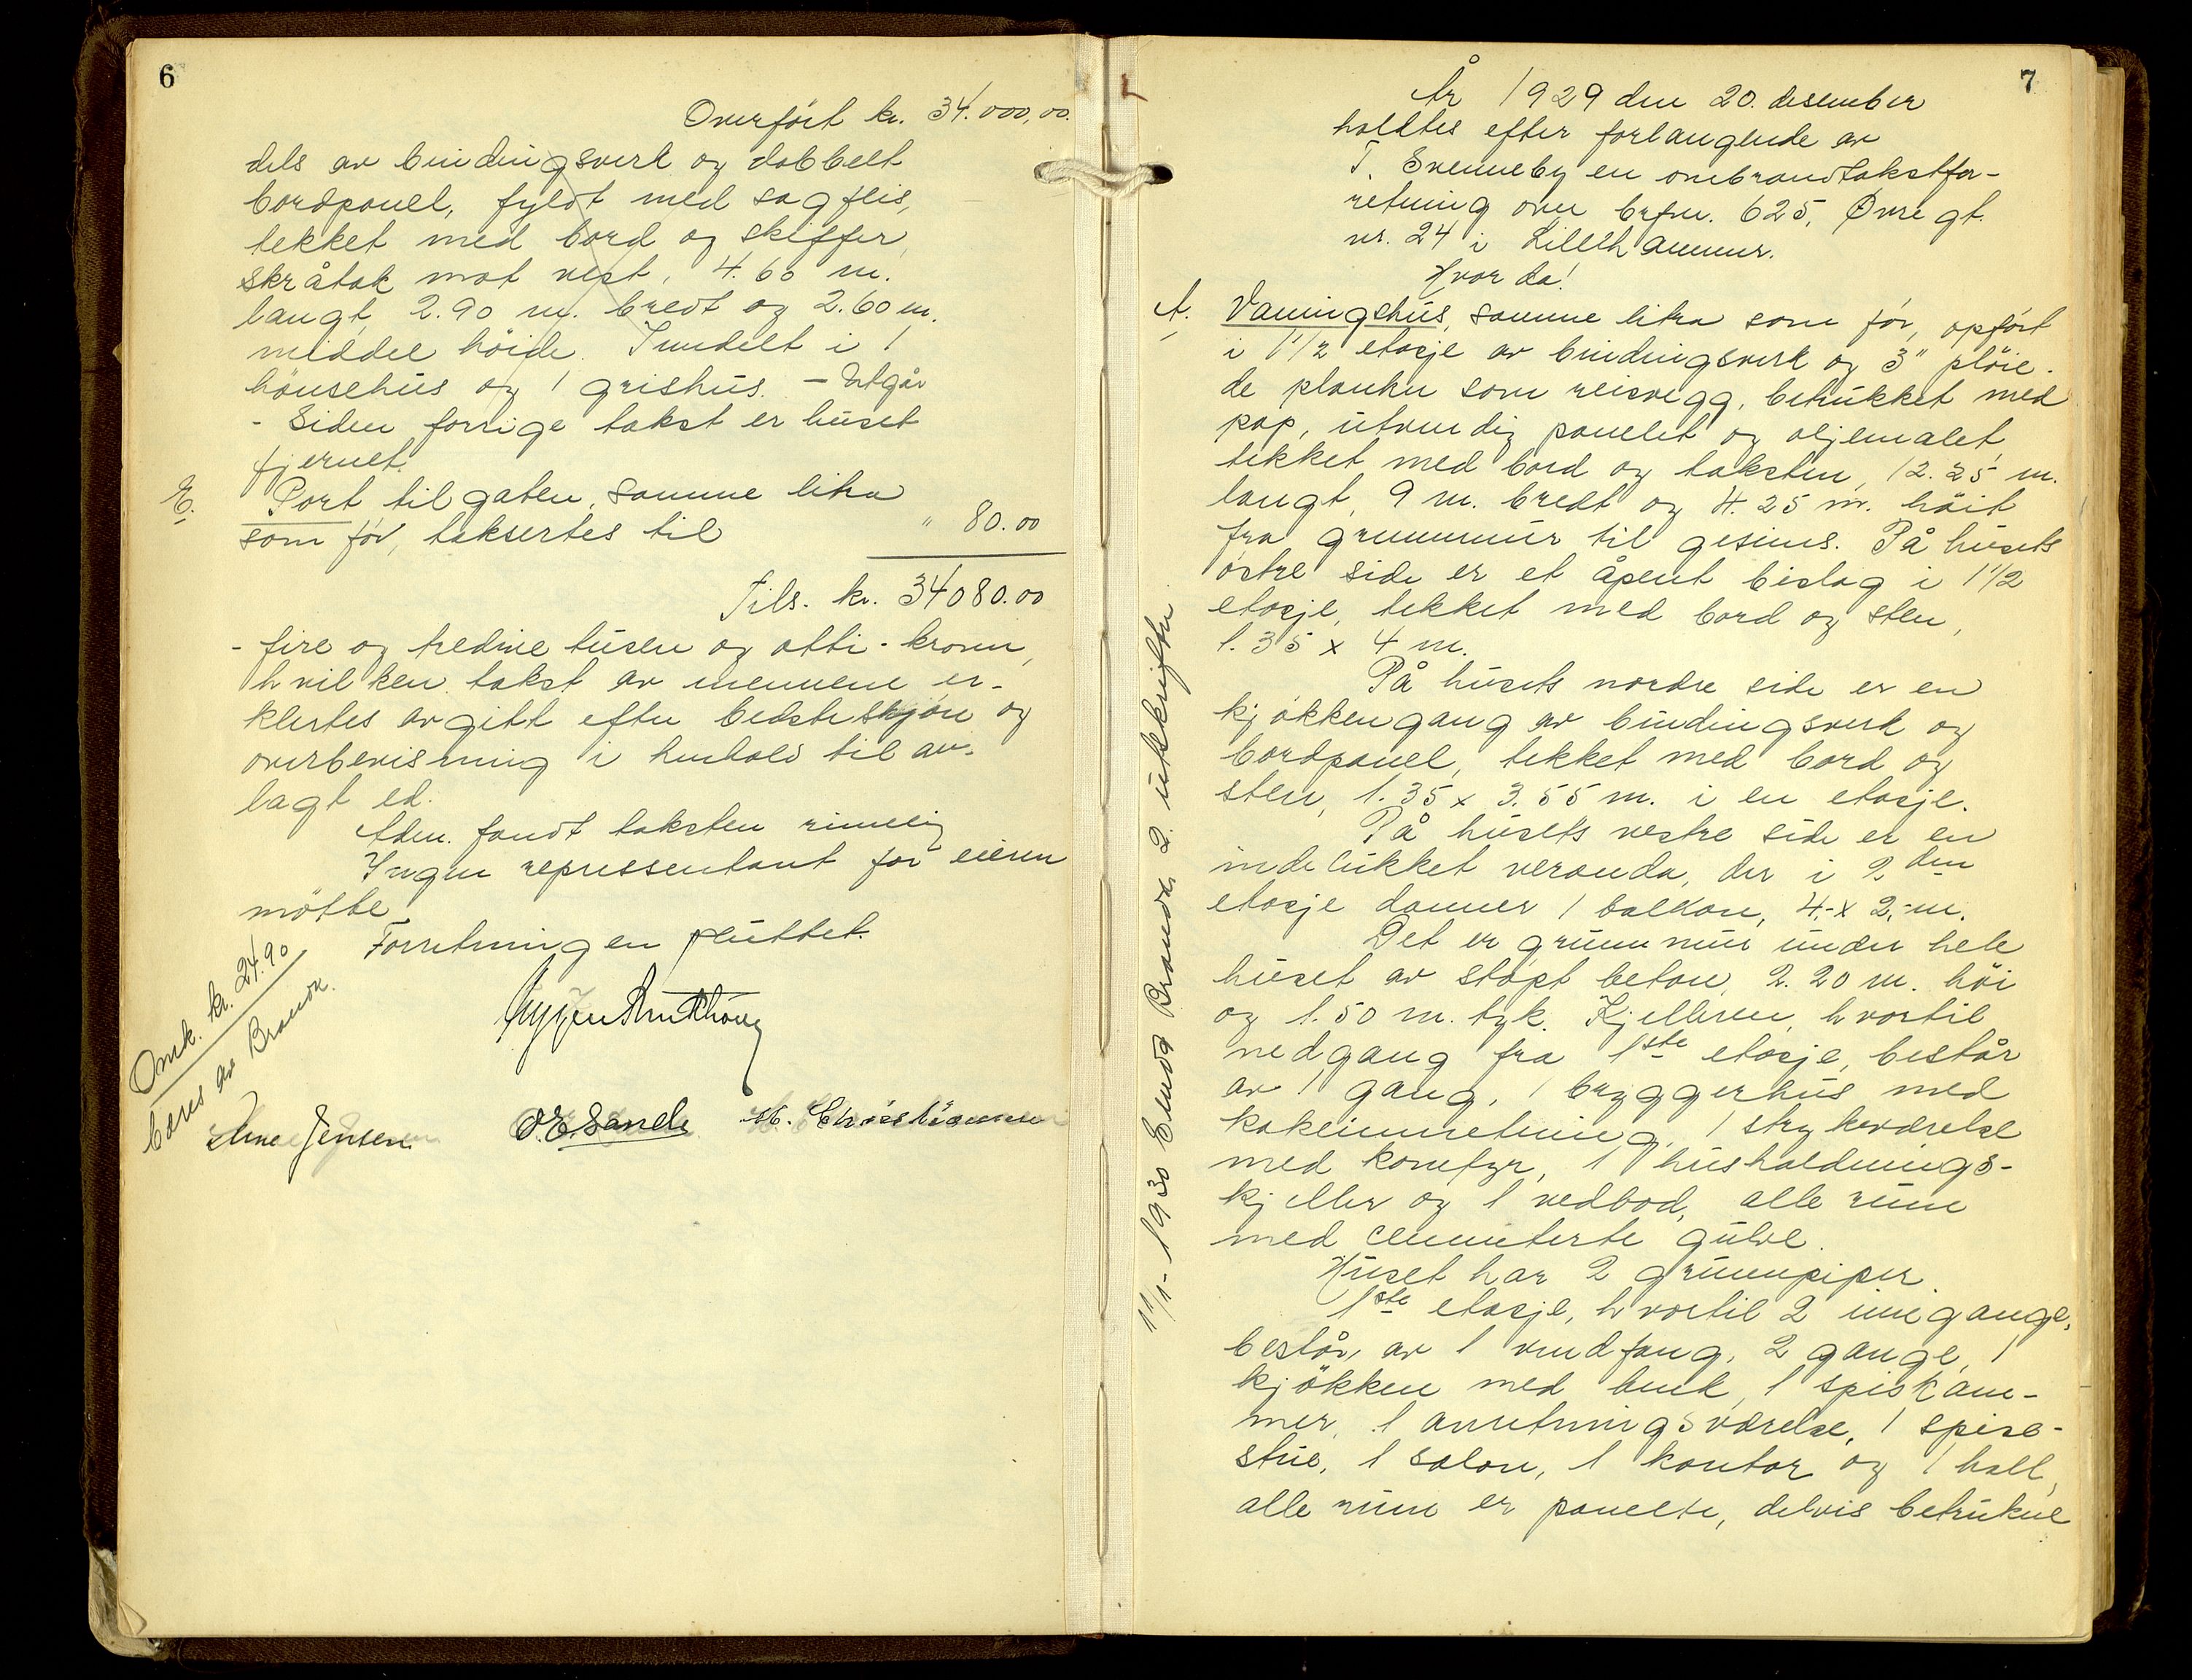 6
Overført kr. 34.000,00.
dels av bindingsverk og dobbelt
bordpanel, fyldt med sagflis,
tekket med bord og skiffer,
skråtak mot vest, 4.60 m.
langt, 2.90 m. bredt og 2.60 m.
middel höide. Inndelt i 1
hönsehus og 1 grishus. – Utgår
- Siden forrige takst er huset
fjernet.
E. Port til gaten, samme litra
som før, taksertes til " 80.00
Tils. kr. 34080.00
- fire og tredive tusen og otti - kroner,
hvilken takst av mennene er-
klertes avgitt efter bedste skjön og
overbevisning i henhold til av-
lagt ed.
Adm. fandt taksten rimelig
Ingen repressentant for eieren
mötte.
Forretningen sluttet.
Omk. kr. 24.90
bæres av Brandk.
Arne Jensen O.E. Sande M. Christiansen
7
År 1929 den 20. desember
holdtes efter forlangende av
T. Svenneby en ombrandtakstfor-
retning over brfnr. 625, Øvregt.
nr. 24 i Lillehammer.
Hvor da!
A. Vaaningshus, samme litra som før, opfört
i 1 1/2 etasje av bindingsverk og 3" plöie-
de planker som reisvegg, betrukket med
pap, utvendig panelet og oljemalet,
tekket med bord og taksten, 12.25 m.
langt, 9 m. bredt og 4.25 m. höit
fra grunnmur til gesims. På husets
östre side er et åpent bislag i 1 1/2
etasje, tekket med bord og sten,
1.35 x 4 m.
På husets nordre side er en
kjökkengang av bindingsverk og
bordpanel, tekket med bord og
sten, 1.35 x 3.55 m. i en etasje.
På husets vestre side er en
indelukket veranda, der i 2den
etasje danner 1 balkon, 4,- x 2,- m.
Det er grunnmur under hele
huset av stöpt beton, 2.20 m. höi
og 1.50 m. tyk. Kjelleren, hvortil
nedgang fra 1ste etasje, består
av 1 gang, 1 bryggerhus med
kokeinnretning, 1 strykeværelse
med komfyr, 1 husholdnings-
kjeller og 1 vedbod, alle rum
med cementerte gulve.
Huset har 2 grunnpiper.
1ste etasje, hvortil 2 innigange,
består av 1 vindfang, 2 gange, 1
kjökken med benk, 1 spiskam-
mer, 1 anretningsværelse, 1 spise-
stue, 1 salon, 1 kontor og 1 hall,
alle rum er panelte, delvis betrukne
11/1-1930 Sendt Brandk. 2 utskrifter